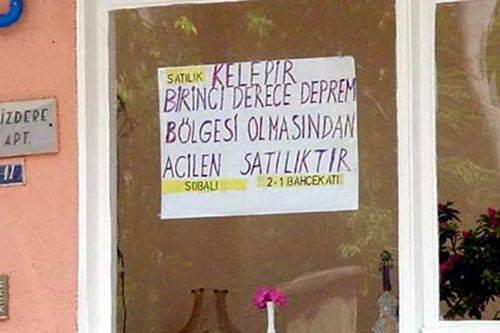 SATILIK KELEPİR
BİRİNCİ DERECE DEPREM
BÖLGESİ OLMASINDAN
ACİLEN SATILIKTIR
SOBALI 2+1 BAHÇEKATI
İZDERE
APT.